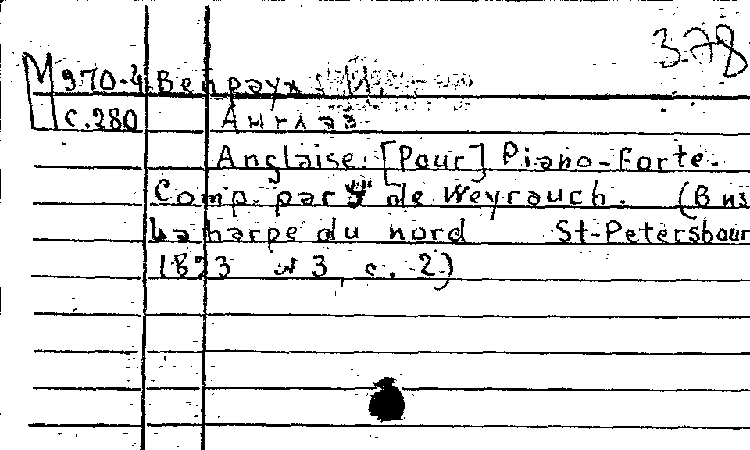 3.78
М 970-4 Вейраух
с.280 Англэз
Anglaise. [Pour] Piano-Forte.
Comp. par de Weyrauch. (В кн
La harpe du nord St-Petersbour
1823 N 3, с. 2)